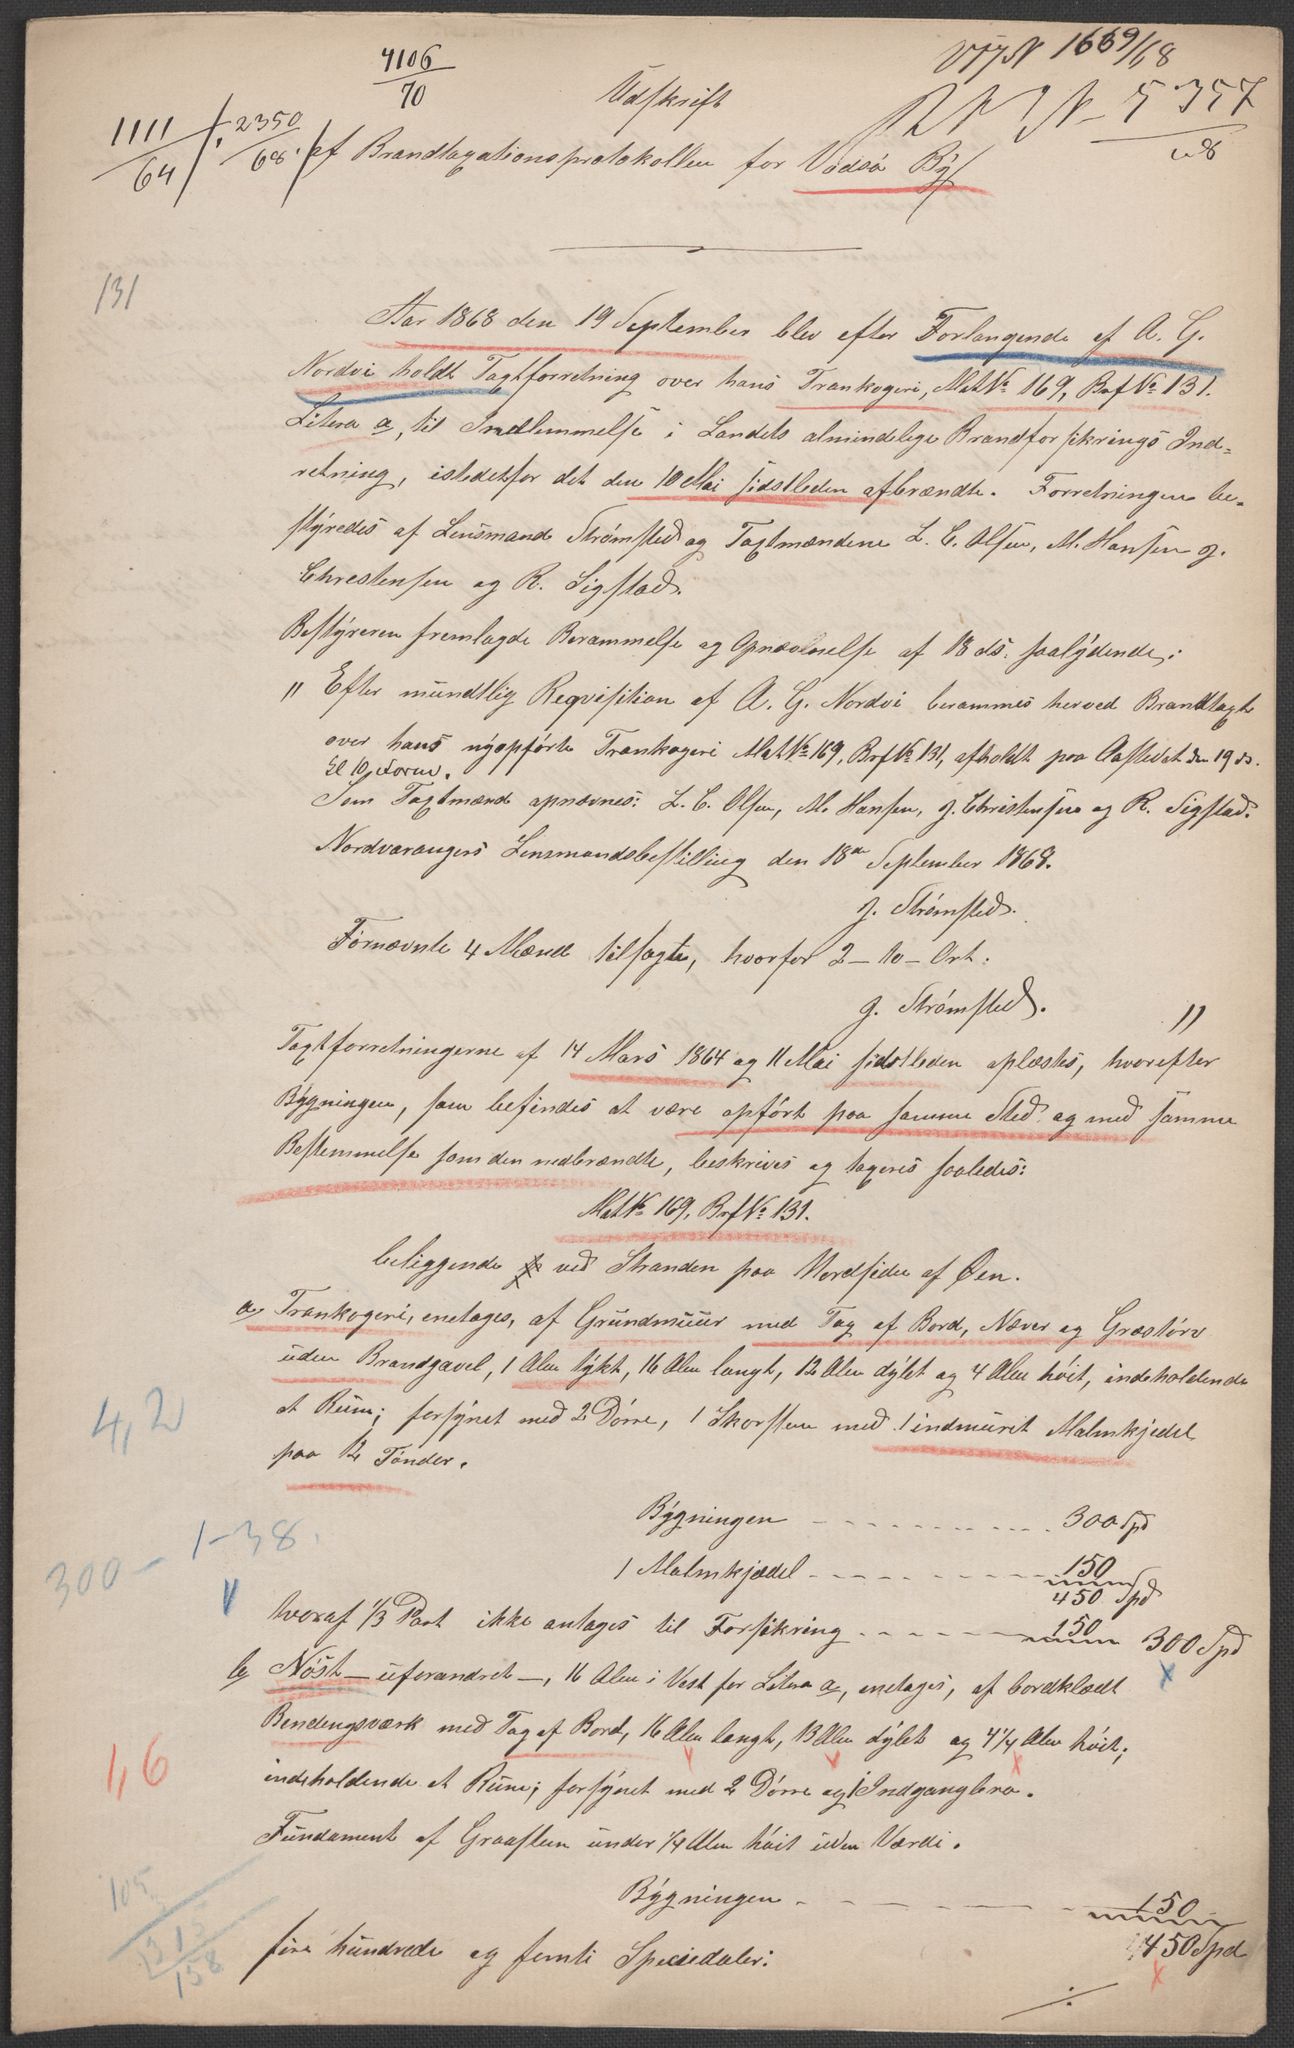 4106/70
1669/68
Udskrift
5357/68
1111/64 2350/68.
af Brandtaxationsprotokollen for Vadsø By
131
Aar 1868 den 19 September blev efter Forlangende af A. G.
Nordvi holdt Taxtforretning over hans Trankogeri, Mat№ 169, Brf№ 131.
Litera a, til Indlemmelse i Landets almindelige Brandforsikrings Ind=
retning, istedetfor det den 10 Mai sidstleden afbrændte. Forretningen be=
styredes af Lensmand Strømsted og Taxtmændene L. C. Olsen, M. Hansen J.
Christensen og R. Sigstad.
Bestyreren fremlagde Berammelse og Opnævnelse af 18 ds. saalydende:
" Efter mundtlig Reqvisition af A. G. Nordvi berammes herved Brandtaxt
over hans nyopførte Trankogeri Mat№ 169, Brf№ 131, afholdt paa Aastedet den 19 ds.
Kl 10 Form.
Som Taxtmænd opnævnes: L. C. Olsen, M. Hansen, J. Christensen og R. Sigstad.
Nordvarangers Lensmandsbestilling den 18de September 1868.
J. Strømsted.
Fornævnte 4 Mænd tilsagte, hvorfor 2 - 10 - Ort.
J. Strømsted. "
Taxtforretningerne af 14 Mars 1864 og 11 Mai sidstleden oplæstes, hvorefter
Bygningen, som befindes at være opført paa samme Sted og med samme
Bestemmelse som den nedbrændte, beskrives og taxeres saaledes:
Mat№ 169. Brf№ 131.
beliggende ved Stranden paa Nordsiden af Øen.
a, Trankogeri, enetages, af Grundmuur med Tag af Bord, Næver og Græstørv
uden Brandgavel, 1 Alen tykt, 16 Alen langt, 12 Alen dybt og 4 Alen høit, indeholdende
4,2
et Rum; forsynet med 2 Dørre, 1 Skorsten med 1 indmuret Malmkjedel
paa 12 Tønder.
Bygningen - - - - 300 Spd
300 - 1-38.
1 Malmkjædel - - - - 150
450 Spd
hvoraf 1/3 Part ikke antages til Forsikring - - - - 150 300 Spd
b, Nøst - uforandret -, 16 Alen i Vest for Litera a, enetages, af bordklædt
Bendingsværk med Tag af Bord, 16 Alen langt, 13 Alen dybt og 4 1/4 Alen høit;
1,6
indeholdende et Rum; forsynet med 2 Dørre og 1 Indgangsbro.
Fundament af Graasten under 1/4 Alen høit uden Værdi.
105
3
Bygningen - - - - 150
315
158
fire hundrede og femti Speciedaler: 450 Spd